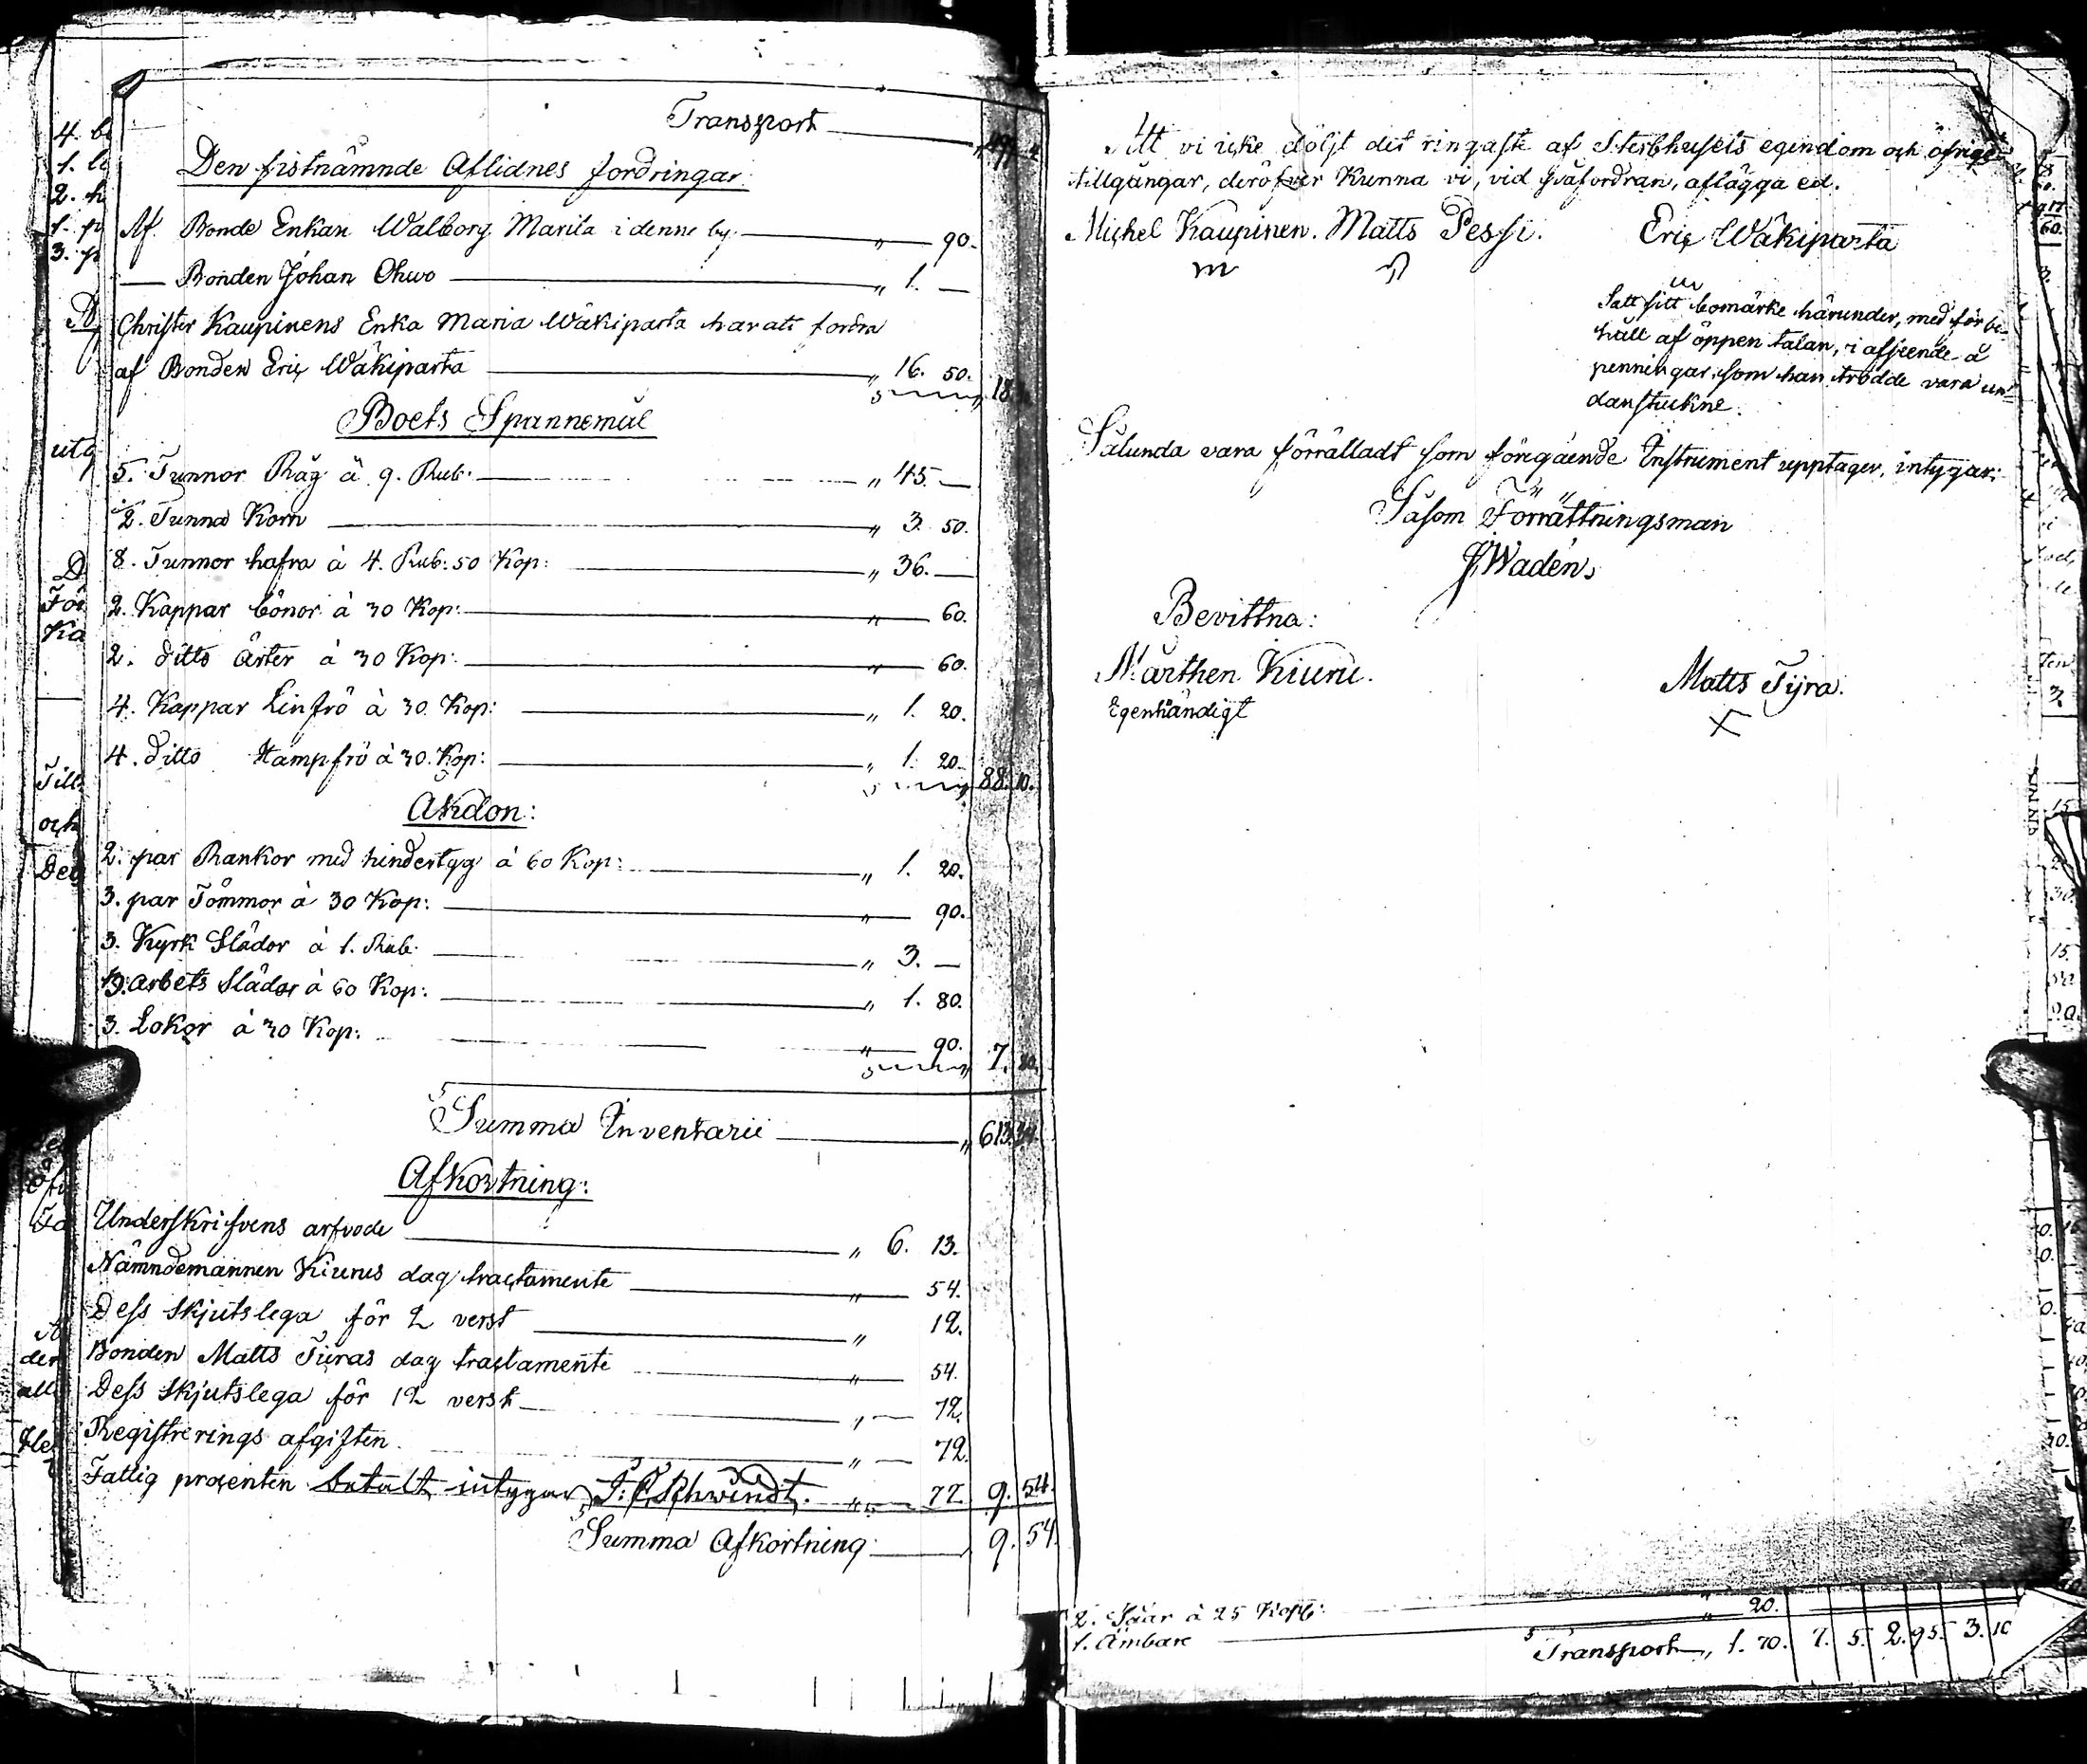 Transport
Den sistnämnde Aflidnes fordringar:
Af Bonde Enkan Walborg Marila i denne by — „ — 90.
— Bonden Johan Ohvo — „ 1. —
Christer Kaupinens Enka Maria Wäkiparta har att fordra
af Bonden Eric Wäkiparta — „ 16. 50. 18.
Boets Spannemål
5. Tunnor Råg à 9. Rub: — „ 45. —
½. Tunna Korn — „ 3. 50.
8. Tunnor hafra à 4. Rub: 50 Kop: — „ 36. —
2. Kappar bönor à 30 Kop: — „ — 60.
2. ditto ärter à 30 Kop: — „ — 60.
4. Kappar Linfrö à 30. Kop: — „ 1. 20.
4. ditto Hampfrö à 30. Kop: — „ 1. 20. 88. 10.
Åkdon:
2. par Rankor med hindertyg à 60 Kop: — „ 1. 20.
3. par Tömmor à 30 Kop: — „ — 90.
3. Kyrk Slädor à 1. Rub. — „ 3. —
3. arbets Slädor à 60 Kop: — „ 1. 80.
3. Lokor à 30 Kop: — „ — 90. 7. 80.
Summa Inventarii — „ 613.
Afkortning:
Underskrifvens arfvode — „ 6. 13.
Nämndemannen Kiurus dag tractamente — „ — 54.
Dess skjutslega för 2 verst — „ 12.
Bonden Matts Türas dag tractamente — „ — 54.
Dess skjutslega för 12 verst — „ — 72.
Registrerings afgiften — „ — 72.
Fattig procenten betalt, intygar J: Schwindt. — „ — 77. 9. 54.
Summa Afkortning — 9. 54.
Att vi icke döljt det ringaste af Sterbhusets egendom och öfrige
tillgångar, deröfver Kunna vi, vid påfordran, aflägga ed.
Michel Kaupinen. Matts Pessi. Eric Wäkiparta
Satt sitt bomärke härunder, med förbe=
håll af öppen talan, i afseende å
penningar som han trodde vara un=
danstuckne.
Sålunda vara förrättadt som föregående Instrument upptager, intygar:
Såsom Förrättningsman
J. Wadén
Bevittna:
Mårthen Kiuru. Matts Tyra.
Egenhändigt
2. Såar à 25 Kop:
1. Ämbare — „ 20.
Transport „ 1. 70. 7. 5. 2. 95. 3. 10